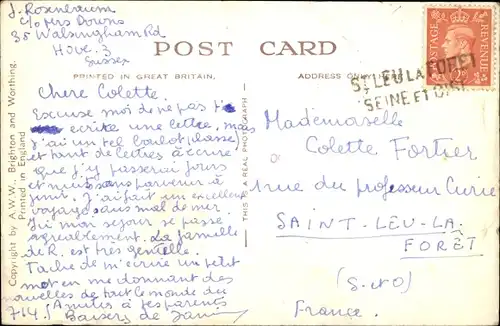 J. Rosenbaum
c/o Mrs Downs
35 Walsingham Rd
Hove. 3
Sussex
POST CARD
PRINTED IN GREAT BRITAIN.
ADDRESS ONLY HERE
POSTAGE
REVENUE
ST LEU LA FORET
SEINE ET OISE
Chère Colette,
Excuse moi de ne pas t'
écrire une lettre, mais
j'ai un tel boulot (classe)
et tant de lettres à écrire
que j'y passerai jours
et nuits sans parvenir à
finir. J'ai fait un excellent
voyage sans mal de mer.
Ici mon séjour se passe
agréablement. La famille
de R. est très gentille.
Tâche de m'écrire un petit
mot en me donnant des
nouvelles de tout le monde du
714. (Amitiés à tes parents
Baisers de
Mademoiselle
Colette Fortier
rue du professeur Curie
SAINT-LEU-LA-
FORÊT
(S.-&-O)
France.
Copyright by A.W.W., Brighton and Worthing.
Printed in England
THIS IS A REAL PHOTOGRAPH